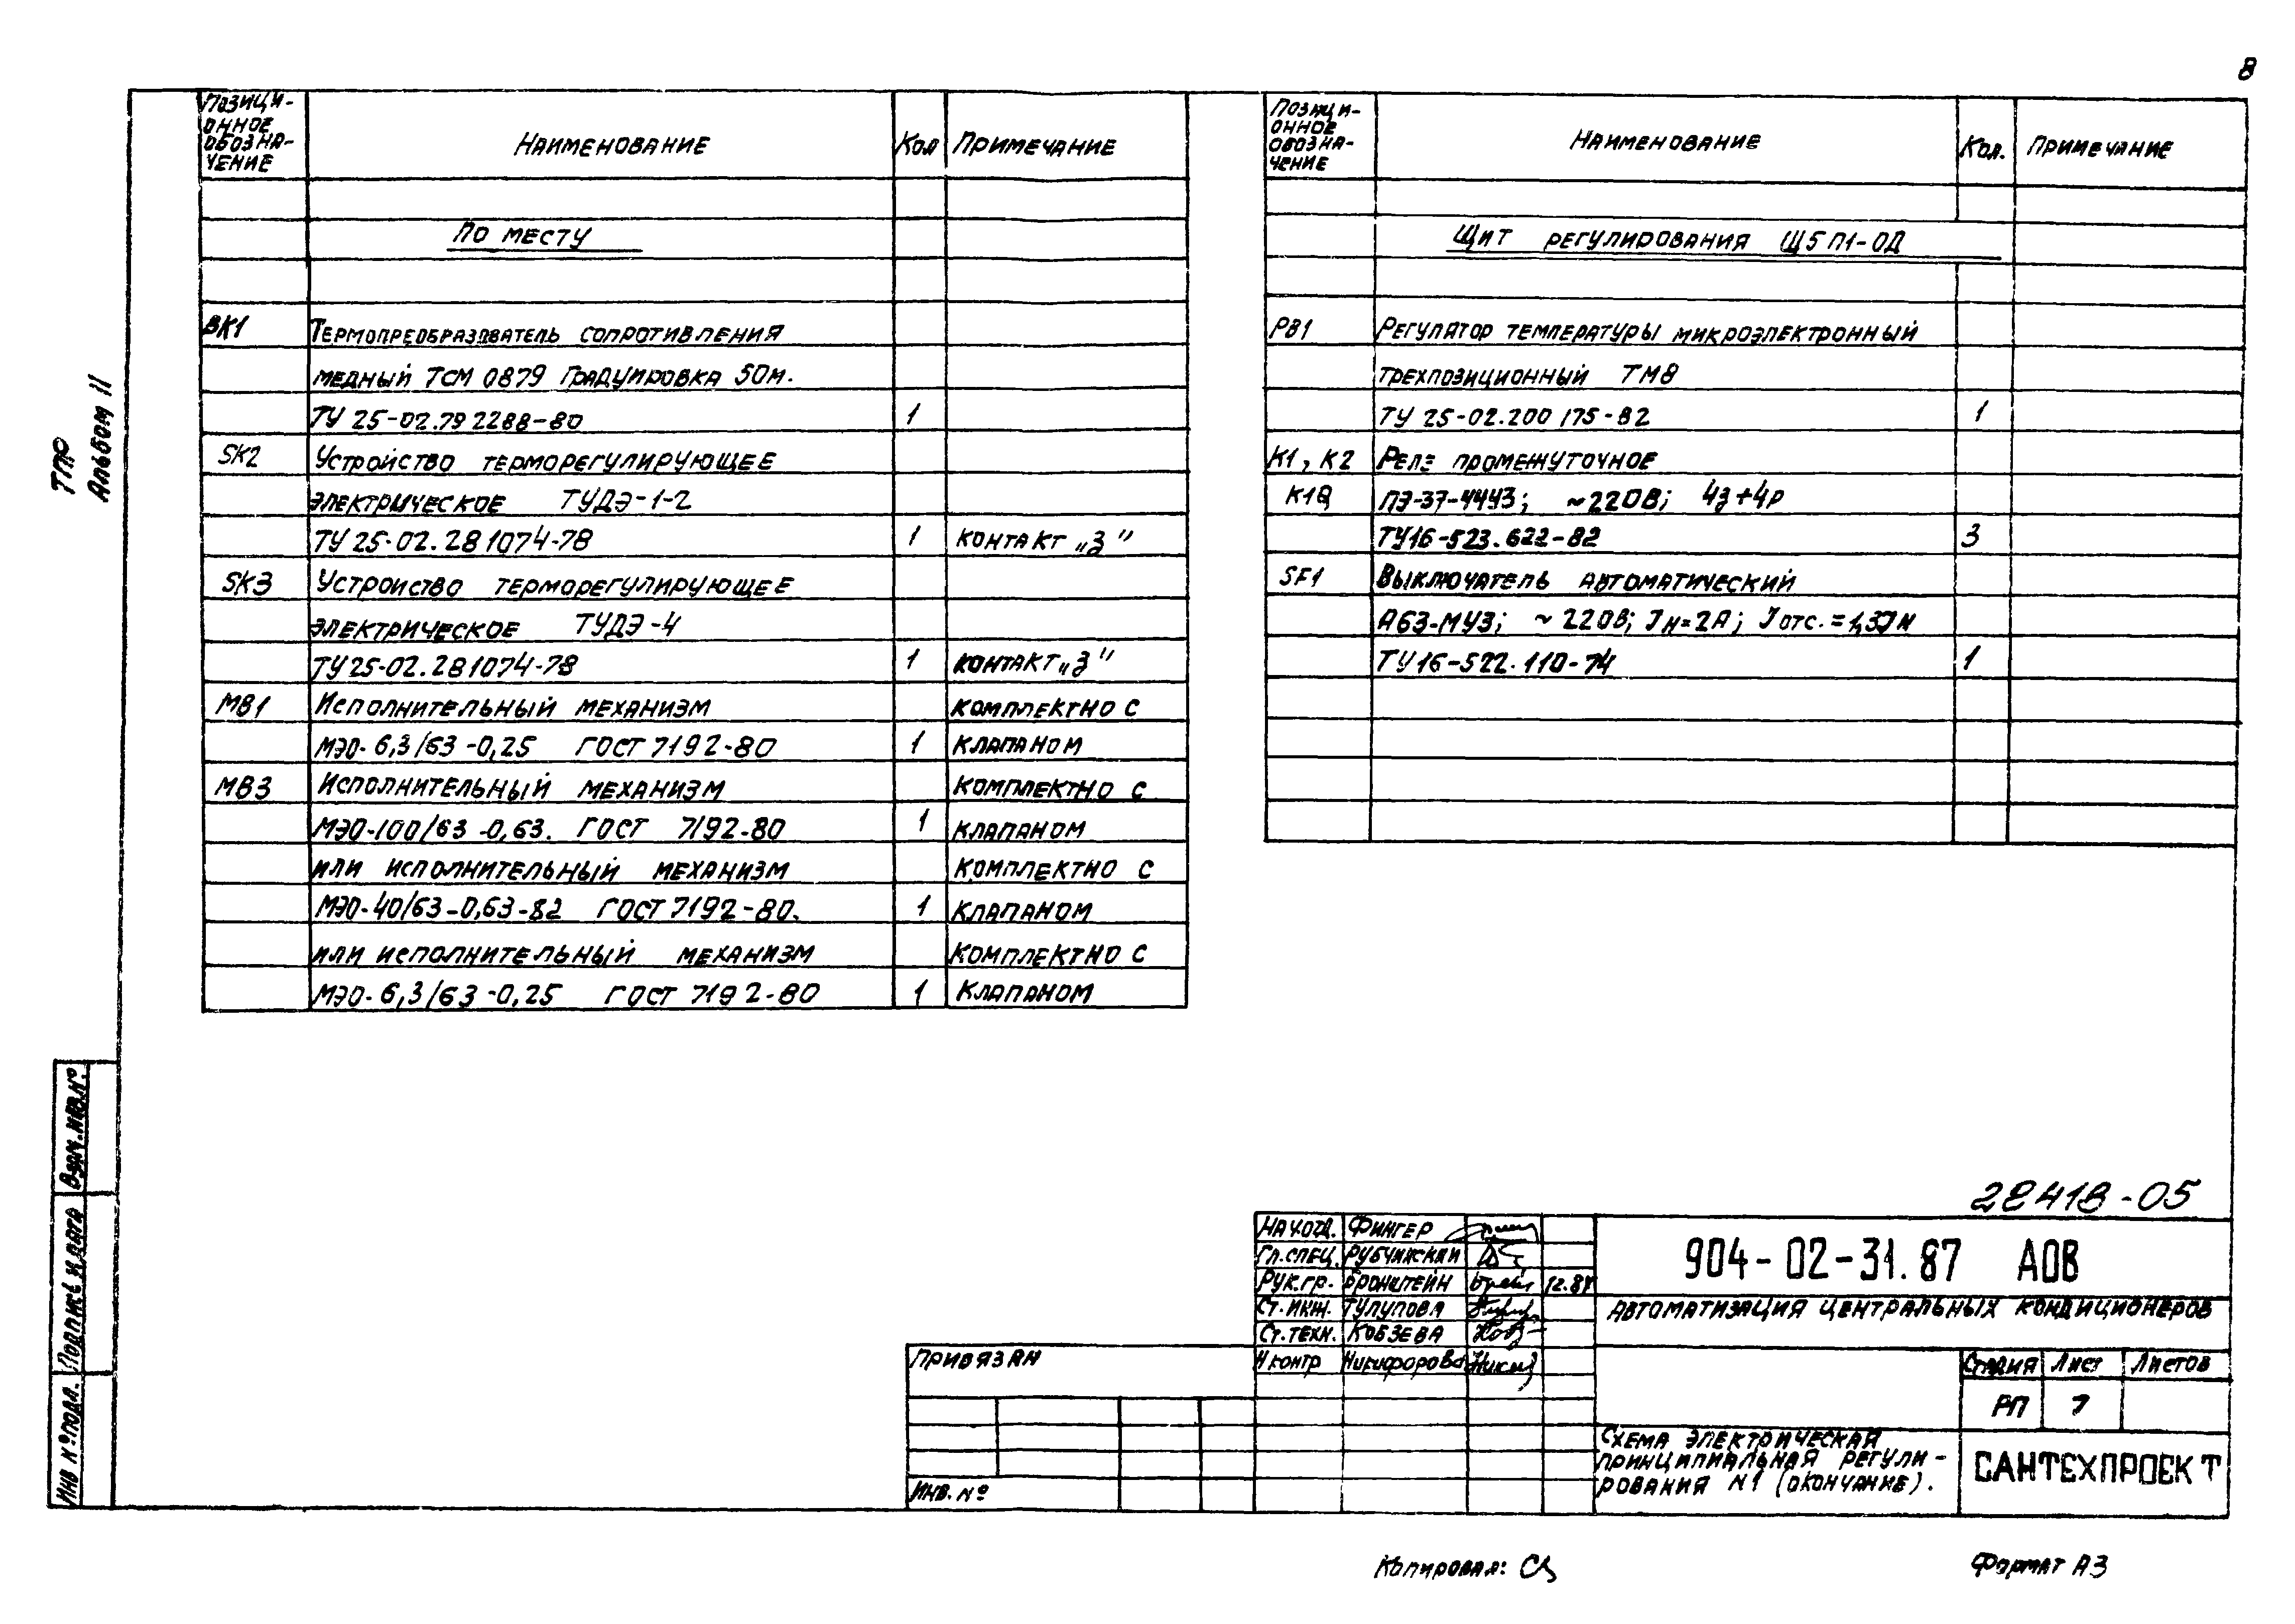 8
ТПР
Альбом 11
Позици-
онное
обозна-
чение
Наименование
Кол
Примечание
По месту
ВК1 Термопреобразователь сопротивления
медный ТСМ 0879 Градуировка 50м.
ТУ 25-02.79 2288-80 1
SK2 Устройство терморегулирующее
электрическое ТУДЭ-1-2
ТУ 25-02.281074-78 1 контакт „З"
SK3 Устройство терморегулирующее
электрическое ТУДЭ-4
ТУ 25-02.281074-78 1 контакт „З"
МВ1 Исполнительный механизм комплектно с
МЭО-6,3/63-0,25 ГОСТ 7192-80 1 клапаном
МВ3 Исполнительный механизм комплектно с
МЭО-100/63-0,63. ГОСТ 7192-80 1 клапаном
или исполнительный механизм комплектно с
МЭО-40/63-0,63-82 ГОСТ 7192-80. 1 клапаном
или исполнительный механизм комплектно с
МЭО-6,3/63-0,25 ГОСТ 7192-80 1 клапаном
Позици-
онное
обозна-
чение
Наименование
Кол.
Примечание
Щит регулирования Щ5П1-ОД
РВ1 Регулятор температуры микроэлектронный
трехпозиционный ТМ8
ТУ 25-02.200 175-82 1
К1, К2 Реле промежуточное
ПЭ-37-44У3; ~220В; 4з+4р
ТУ16-523.622-82 3
SF1 Выключатель автоматический
А63-МУ3; ~220В; Jн=2А; Jотс.=1,3Jн
ТУ16-522.110-74 1
Взам.инв.№
Подпись и дата
Инв №подл.
28418-05
Нач.отд. Фингер
Гл.спец. Рубчинский
Рук.гр. Бронштейн
Ст.инж. Тулупова
Ст.техн. Кобзева
Н контр Никифорова
904-02-31.87 АОВ
Автоматизация центральных кондиционеров
Привязан
Инв. №
Стадия Лист Листов
РП 7
Схема электрическая
принципиальная регули-
рования №1 (окончание).
САНТЕХПРОЕКТ
Копировал:
Формат А3